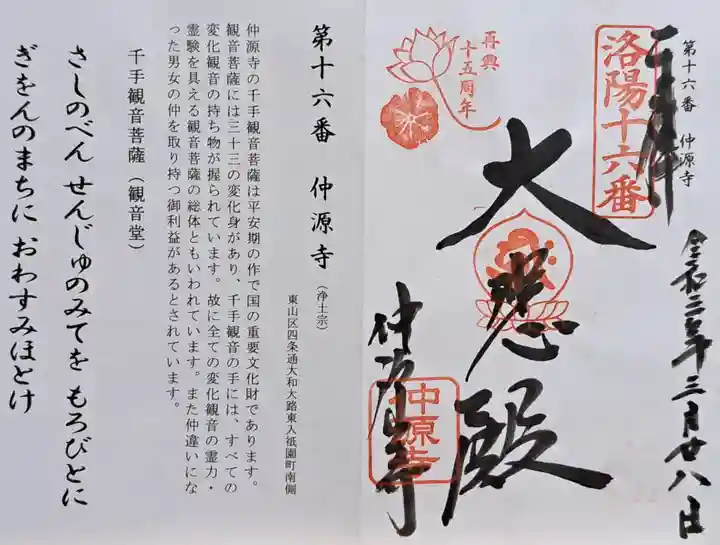 第十六番 仲源寺
奉拝
洛陽十六番
再興
十五周年
大悲殿
仲源寺
中原寺
令和三年三月廿八日
第十六番 仲源寺(浄土宗)
東山区四条通大和大路東入祇園町南側
仲源寺の千手観音菩薩は平安期の作で国の重要文化財であります。
観音菩薩には三十三の変化身があり、千手観音の手には、すべての
変化観音の持ち物が握られています。故に全ての変化観音の霊力・
霊験を具える観音菩薩の総体ともいわれています。また仲違いにな
った男女の仲を取り持つ御利益があるとされています。
千手観音菩薩(観音堂)
さしのべん せんじゅのみてを もろびとに
ぎをんのまちに おわすみほとけ